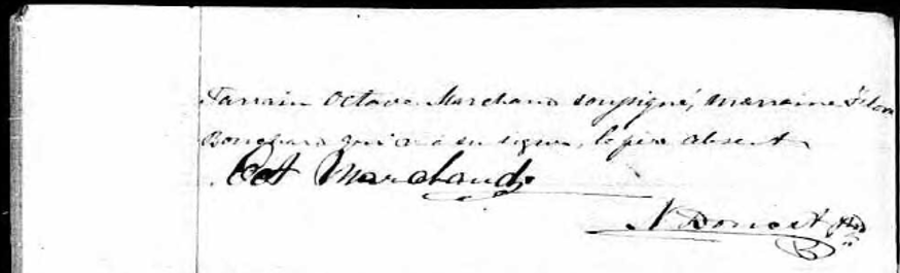 Parrain Octave Marchand soussigné, marraine
Bouchard qui n'a su signer, le père absent
Oct Marchand
N Doucet Ptre